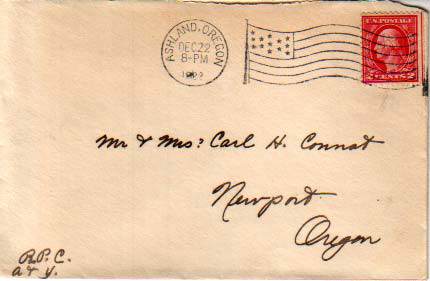 ASHLAND, OREGON
DEC 22
8-PM
U.S. POSTAGE
2 CENTS 2
Mr & Mrs. Carl H.
Newport
Oregon
R.P.C.
a & y.